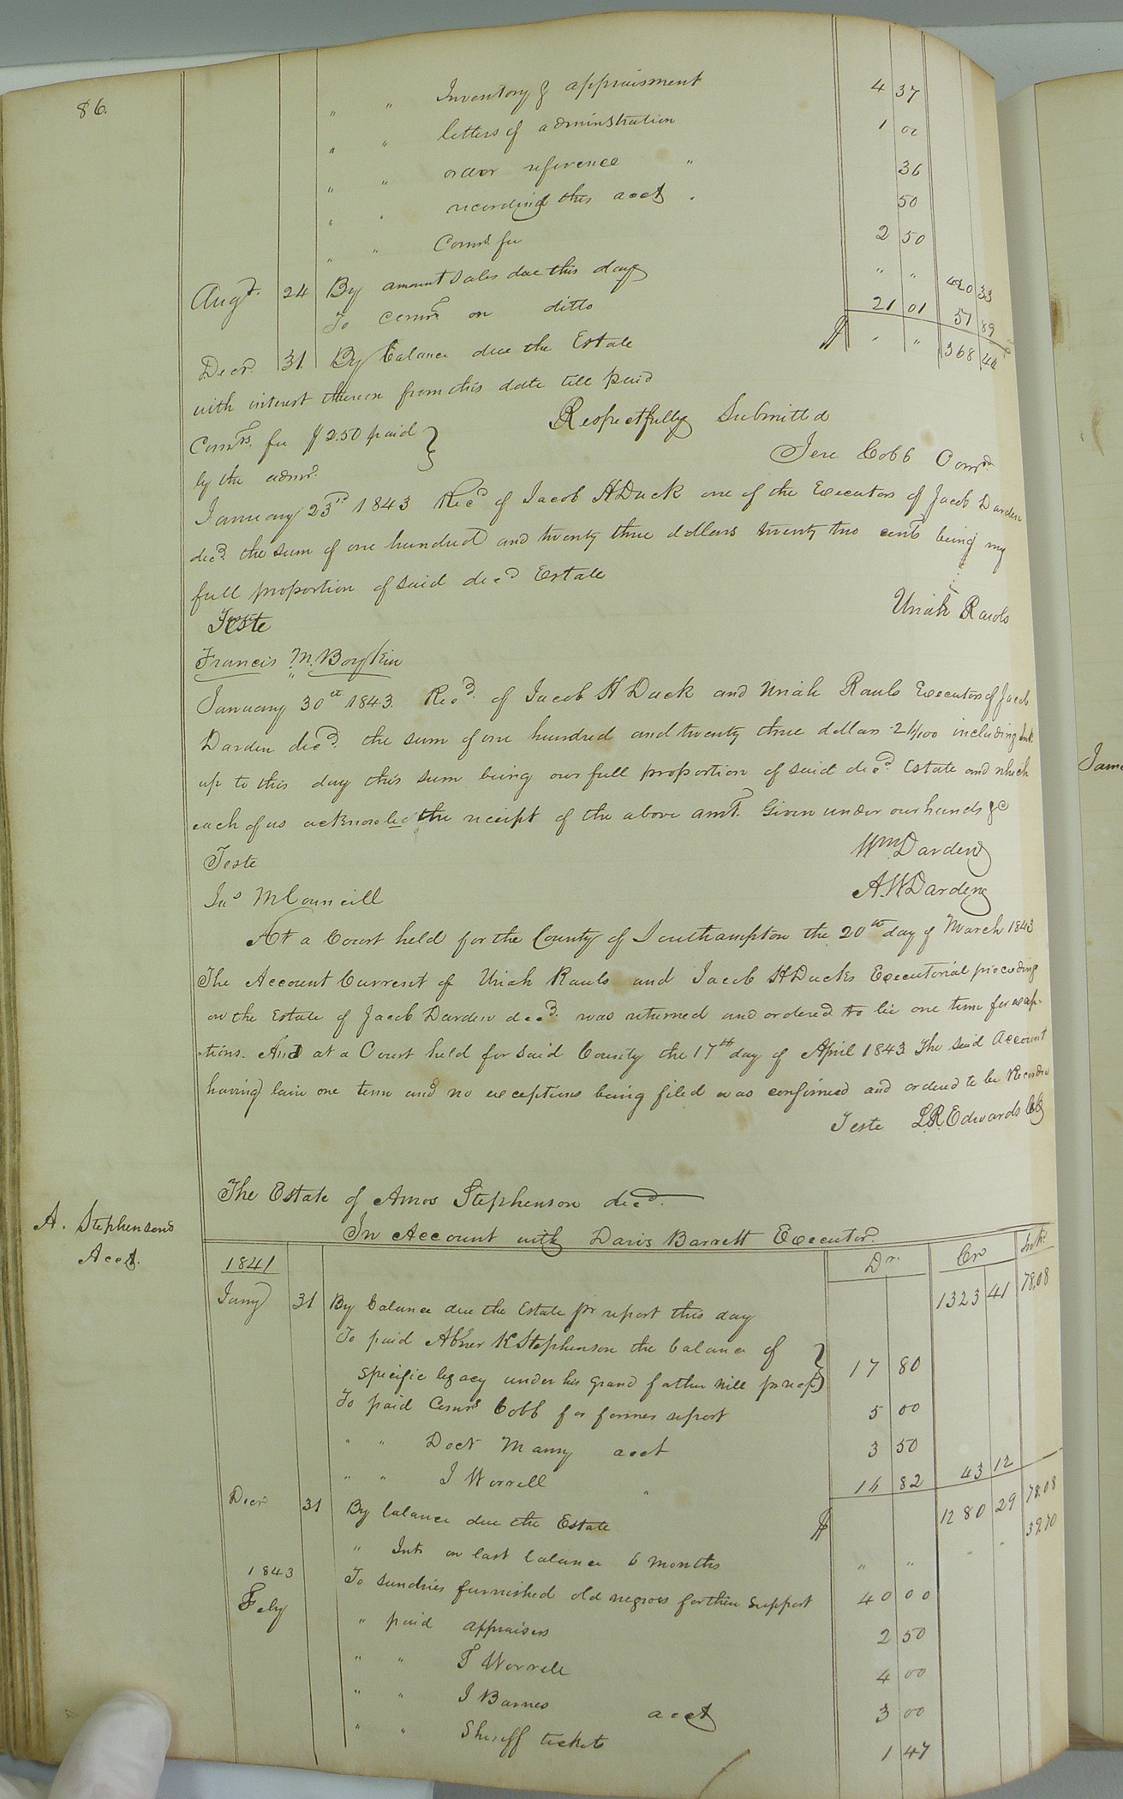 86.
" " Inventory & appraisment 4 37
" " letters of adminstration 1 00
" " order reference " 36
" " recording this acct . 50
" " Comrs fee 2 50
Augt. 24 By amount sales due this day " " 420 33
To Comrs on ditto 21 01 51 89
Decr. 31 By balance due the Estate $ " " 368 44
with interest thereon from this date till paid
Respectfully Submitted
Comrs. fee $2.50 paid }
by the admr.
Jere Cobb Comr
January 23rd 1843 Recd of Jacob H Duck one of the Executors of Jacob Darden
decd. the sum of one hundred and twenty three dollars twenty two cents being my
full proportion of said decd Estate
Uriah Rawls
Teste
Francis M. Boykin
January 30th 1843. Recd. of Jacob H Duck and Uriah Rawls Executors of Jacob
Darden decd. the sum of one hundred and twenty three dollars 21/100 including
up to this day this sum being our full proportion of said decd. Estate and which
each of us acknowledge the receipt of the above amt. Given under our hands &c
Wm Darden
Teste
A. W Darden
Jno M Councill
At a Court held for the County of Southampton the 20th day of March 1843
The Account Current of Uriah Rawls and Jacob H Ducks Executorial proceeding
on the Estate of Jacob Darden decd. was returned and ordered to lie one time for excep-
tions. And at a Court held for said County the 17th day of April 1843 The said Account
having lain one term and no exceptions being filed was confirmed and ordered to be Recorded
Teste L. R. Edwards Clk
The Estate of Amos Stephenson decd.
A. Stephensons
Acct.
In Account with Davis Barrett Executor.
1841 Dr. Cr Int.
Jany 31 By balance due the Estate pr report this day 1323 41 78,08
To paid Abner K Stephenson the balance of }
specific legacy under his grand father will pr rect } 17 80
To paid Comrs Cobb for former report 5 00
" " Doct Manny acct 3 50
" " J Worrell " 16 82 43 12
Decr 31 By balance due the Estate $ 1280 29 78.08
" Int. on last balance 6 months " " " " 39.70
1843
Feby To sundries furnished old negroes for their support 40 00
" paid appraisers 2 50
" " T Worrell 4 00
" " J Barnes acct 3 00
" " Sheriff tickets 1 47
Jame